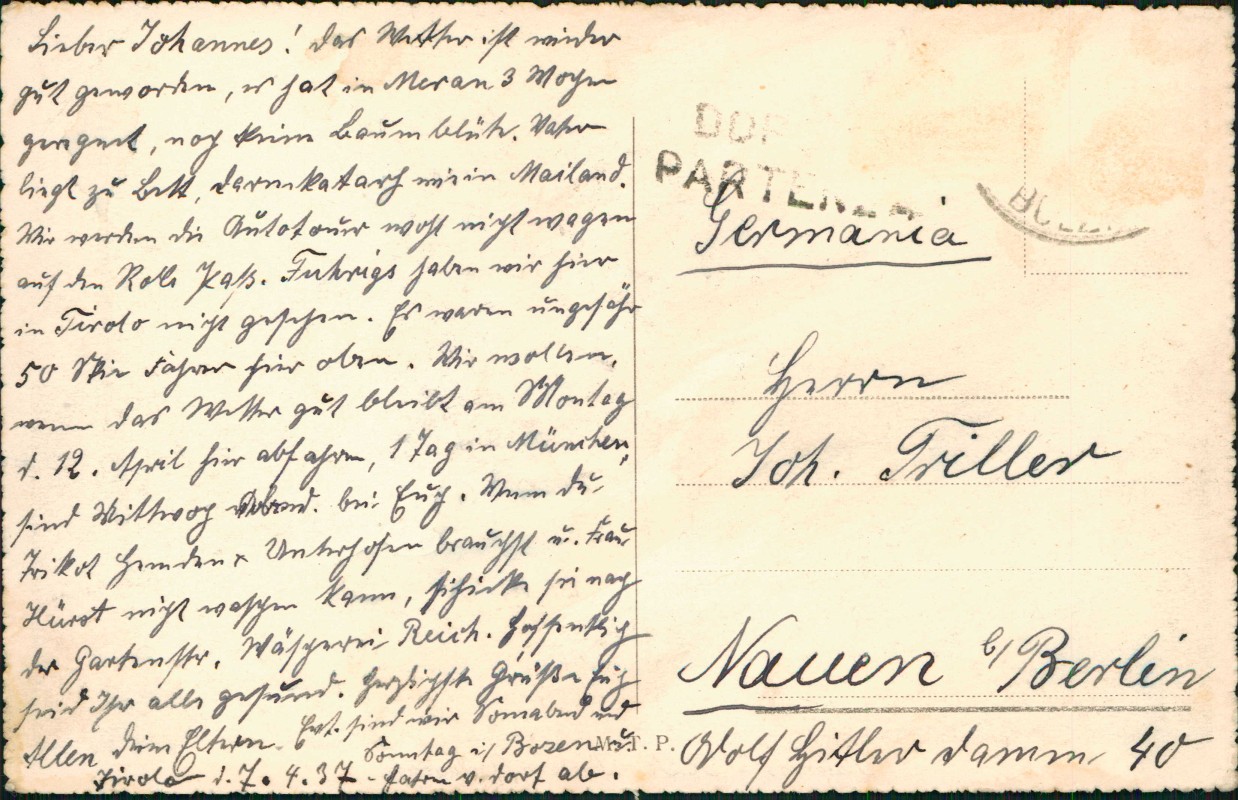 Lieber Johannes! Das Wetter ist wieder
gut geworden, es hat in Meran 3 Wochen
geregnet, noch keine Baumblüte. Vater
liegt zu Bett, Darmkatarh wie in Mailand.
Wir werden die Autotour wohl nicht wagen
auf den Rolle Paß. Fuhrigs haben wir hier
in Tirolo nicht gesehen. Es waren ungefähr
50 Skie Fahrer hier oben. Wir wollen,
wenn das Wetter gut bleibt am Montag
d. 12. April hier abfahren, 1 Tag in München,
sind Mittwoch Abend. bei Euch. Wenn du
Trikot Hemden x Unterhosen brauchst u. Frau
Hürst nicht waschen kann, schicke sie nach
der Gartenstr. Wäscherei Reich. Hoffentlich
seid Ihr alle gesund. Herzlichste Grüße Euch
Allen deine Eltern. Evt. sind wir Sonnabend und
Sonntag i/ Bozen u.
Tirolo d. 7. 4. 37 - fahren v. dort ab.
M. T. P.
PARTENZA
Germania
Herrn
Joh. Triller
Nauen b/ Berlin
Adolf Hitler damm 40